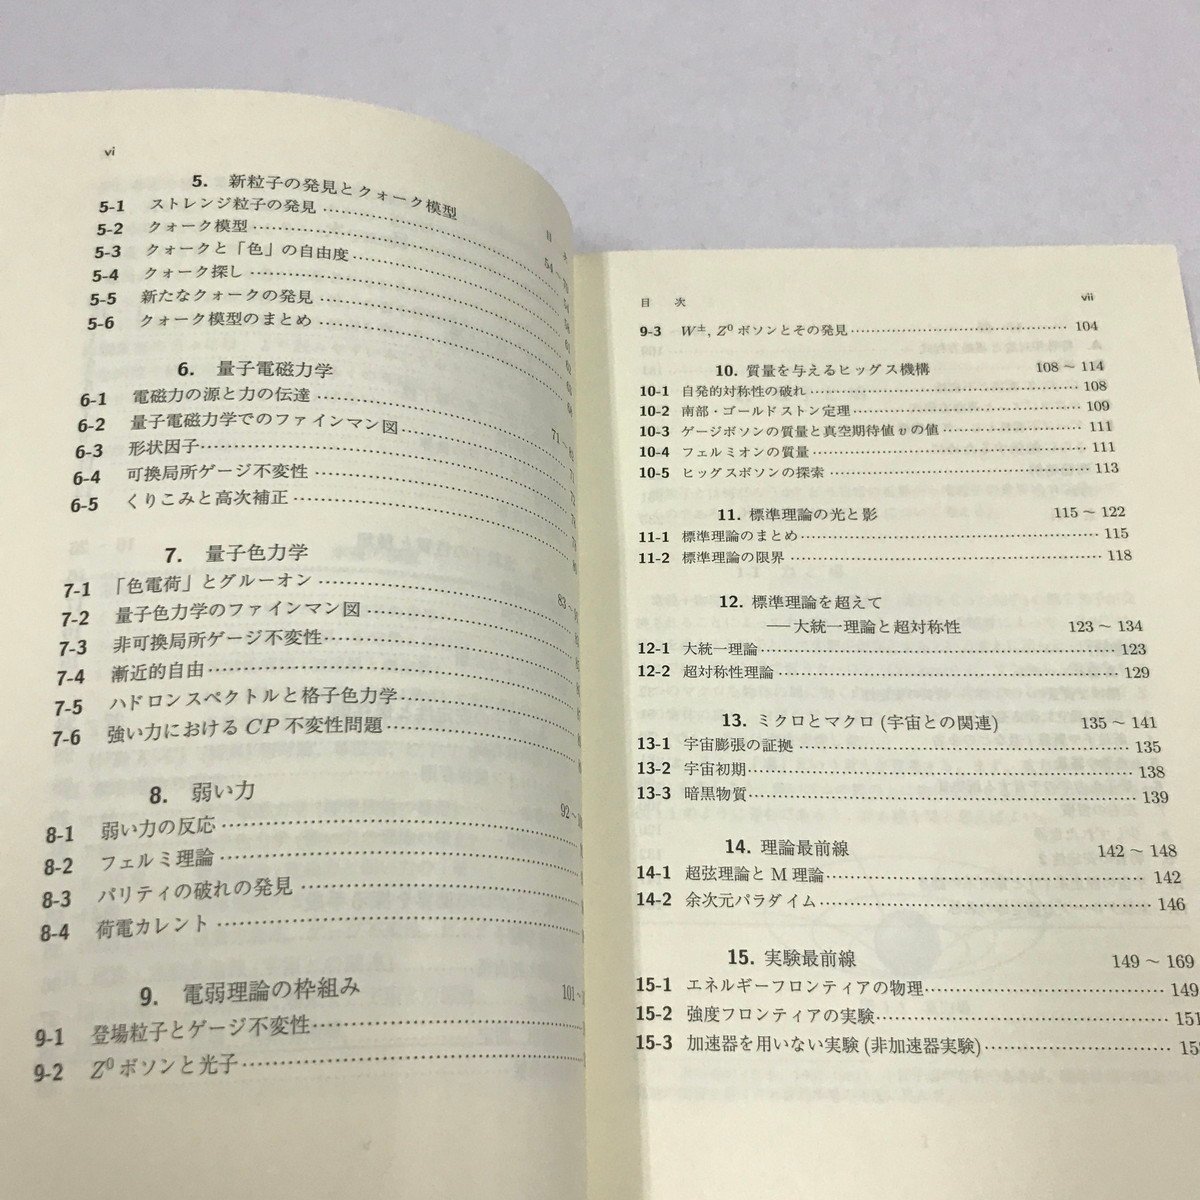 vi
5. 新粒子の発見とクォーク模型
5-1 ストレンジ粒子の発見
5-2 クォーク模型
5-3 クォークと「色」の自由度
5-4 クォーク探し
5-5 新たなクォークの発見
5-6 クォーク模型のまとめ
6. 量子電磁力学
6-1 電磁力の源と力の伝達
6-2 量子電磁力学でのファインマン図
6-3 形状因子
6-4 可換局所ゲージ不変性
6-5 くりこみと高次補正
7. 量子色力学
7-1 「色電荷」とグルーオン
7-2 量子色力学のファインマン図
7-3 非可換局所ゲージ不変性
7-4 漸近的自由
7-5 ハドロンスペクトルと格子色力学
7-6 強い力におけるCP不変性問題
8. 弱い力
8-1 弱い力の反応
8-2 フェルミ理論
8-3 パリティの破れの発見
8-4 荷電カレント
9. 電弱理論の枠組み
9-1 登場粒子とゲージ不変性
9-2 Z⁰ボソンと光子
目 次 vii
9-3 W±, Z⁰ボソンとその発見 104
10. 質量を与えるヒッグス機構 108～114
10-1 自発的対称性の破れ 108
10-2 南部・ゴールドストン定理 109
10-3 ゲージボソンの質量と真空期待値vの値 111
10-4 フェルミオンの質量 111
10-5 ヒッグスボソンの探索 113
11. 標準理論の光と影 115～122
11-1 標準理論のまとめ 115
11-2 標準理論の限界 118
12. 標準理論を超えて
──大統一理論と超対称性 123～134
12-1 大統一理論 123
12-2 超対称性理論 129
13. ミクロとマクロ(宇宙との関連) 135～141
13-1 宇宙膨張の証拠 135
13-2 宇宙初期 138
13-3 暗黒物質 139
14. 理論最前線 142～148
14-1 超弦理論とM理論 142
14-2 余次元パラダイム 146
15. 実験最前線 149～169
15-1 エネルギーフロンティアの物理 149
15-2 強度フロンティアの実験 151
15-3 加速器を用いない実験(非加速器実験)